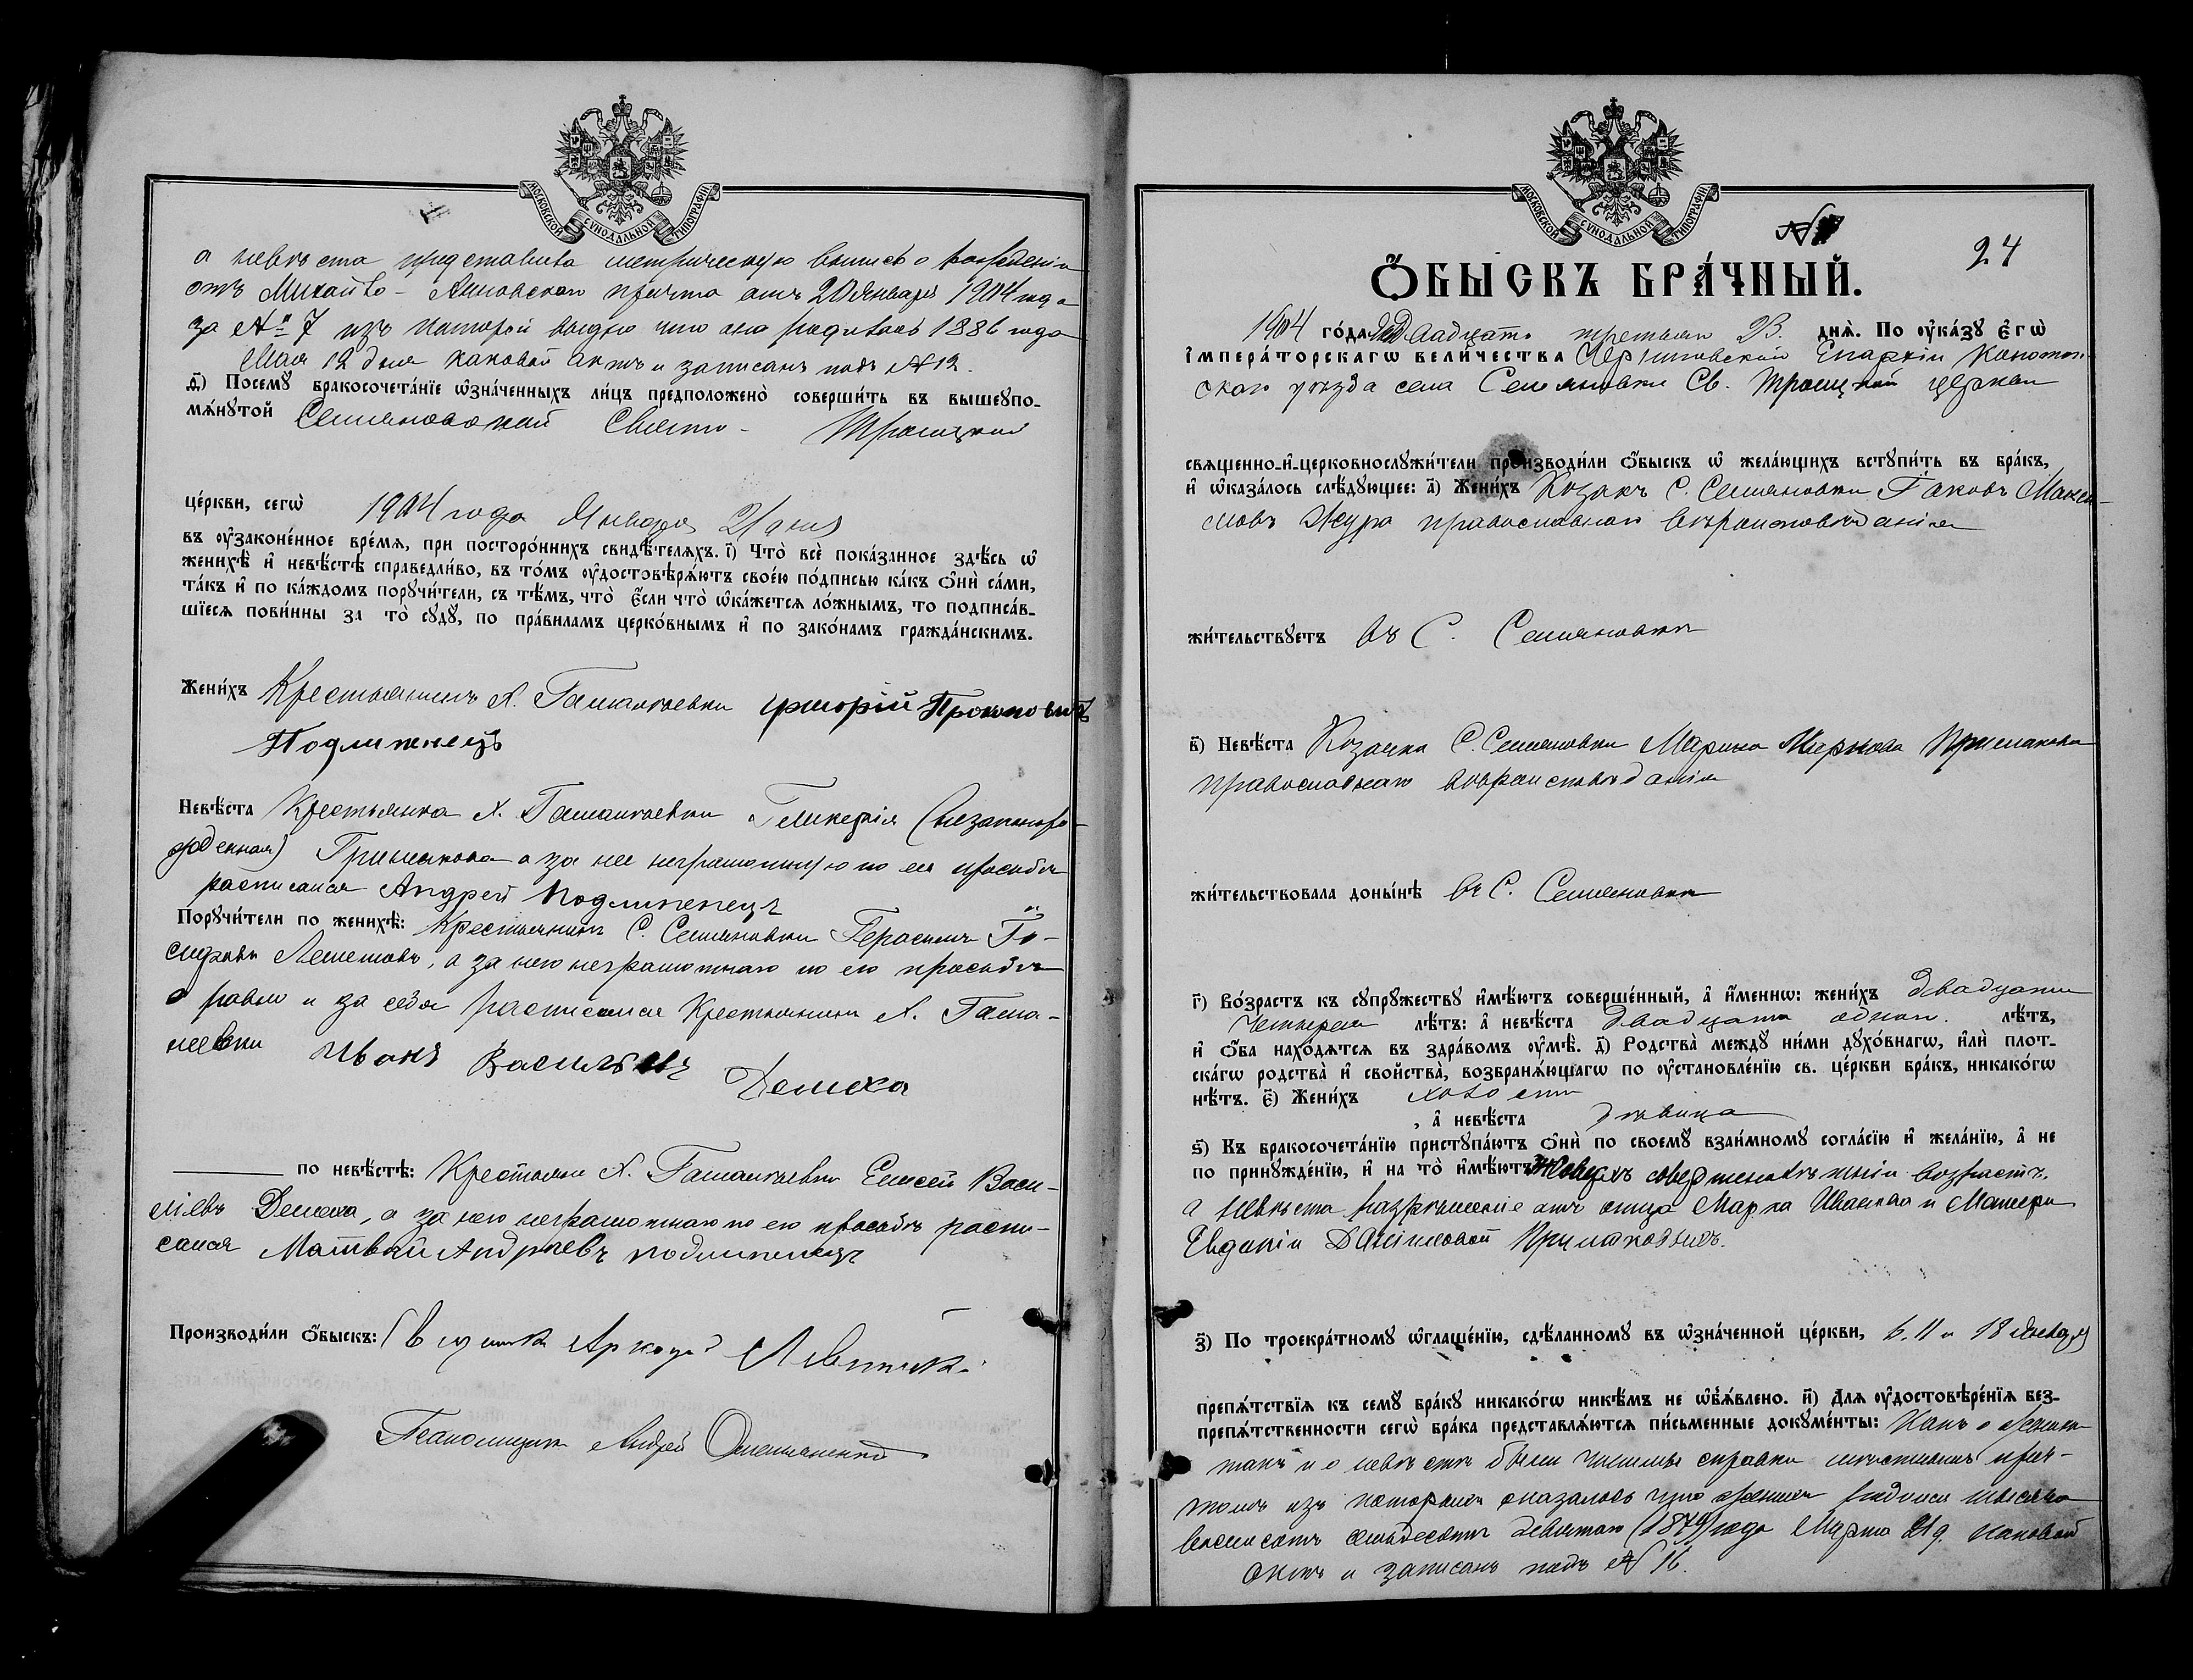 МОСКОВСКОЙ СѴНОДАЛЬНОЙ ТИПОГРАФІИ
а невѣста представила метрическую выпись о рожденіи
отъ Михайло-Анновскаго причта отъ 20 Января 1904 года
за № 7 изъ которой видно что она родилась 1886 года
Мая 12 дня каковой актъ и записанъ подъ № 12.
ѳ҃) Посемꙋ̀ бракосочета́нїе ѡ҆зна́ченныхъ ли́цъ предположено̀ соверши́ть въ вышеꙋпо-
мѧ́нꙋтой Семяновской Свято-Троицкой
це́ркви, сегѡ̀ 1904 года Января 21 дня
въ ᲂу҆законе́нное вре́мѧ, при посторо́ннихъ свидѣ́телѧхъ. і҃) Что̀ всѐ пока́занное здѣ́сь ѡ҆
женихѣ̀ и҆ невѣ́стѣ справедли́во, въ то́мъ ᲂу҆достовѣрѧ́ютъ свое́ю по́дписью ка́къ ѻ҆нѝ са́ми,
та́къ и҆ по ка́ждомъ порꙋчи́тели, съ тѣ́мъ, что̀ є҆́сли что̀ ѡ҆ка́жетсѧ ло́жнымъ, то подписа́в-
шїесѧ пови́нны за то̀ сꙋдꙋ̀, по пра́виламъ церко́внымъ и҆ по зако́намъ гражда́нскимъ.
Жени́хъ Крестьянинъ Х. Гамалѣевки Григорій Прокоповичъ
Подлипенецъ
Невѣ́ста Крестьянка Х. Гамалѣевки Гликерія (незаконоро-
жденная) Примакова а за нее неграмотную по ея просьбѣ
расписался Андрей Подлипенецъ
Порꙋчи́тели по женихѣ̀: Крестьянинъ С. Семяновки Герасимъ Іо-
сифовъ, а за него неграмотнаго по его просьбѣ
а равно и за себя расписался Крестьянинъ Х. Гама-
лѣевки Иванъ Васильевъ Демеха
по невѣ́стѣ: Крестьян. Х. Гамалѣевки Елисей Васи-
ліевъ Демеха, а за него неграмотнаго по его просьбѣ распи-
сался Матвѣй Андреевъ Подлипенецъ
Производи́ли ѻ҆́быскъ: Священникъ Аркадій Левицкій
Псаломщикъ Андрей Омельяненко
МОСКОВСКОЙ СѴНОДАЛЬНОЙ ТИПОГРАФІИ
№
24
Ѻ҆́БЫСКЪ БРА́ЧНЫЙ.
1904 го́да Двадцать третьяго 23. днѧ̀. По ᲂу҆ка́зꙋ Є҆гѡ̀
І҆мпера́торскагѡ вели́чества Черниговской Епархіи Конотоп-
скаго уѣзда села Семяновки Св. Троицкой церкви
свѧщенно-и҆-церковнослꙋжи́тели производи́ли ѻ҆́быскъ ѡ҆ жела́ющихъ вступи́ть въ бра́къ,
и҆ ѡ҆каза́лось слѣ́дꙋющее: а҃) Жени́хъ Козакъ С. Семяновки Іаковъ Макси-
мовъ Жура православнаго вѣроисповѣданія
жи́тельствꙋетъ въ С. Семяновкѣ
в҃) Невѣ́ста Козачка С. Семяновки Марина Маркова Примакова
православнаго вѣроисповѣданія
жи́тельствовала доны́нѣ въ С. Семяновкѣ
г҃) Во́зрастъ къ сꙋпрꙋжествꙋ и҆мѣ́ютъ соверше́нный, а҆ и҆́меннѡ: жени́хъ двадцати
четырехъ лѣ́тъ: а҆ невѣ́ста двадцати одного. лѣ́тъ,
и҆ ѻ҆́ба нахо́дѧтсѧ въ здра́вомъ ᲂу҆мѣ̀. д҃) Родства̀ междꙋ ни́ми дꙋхо́внагѡ, и҆лѝ плот-
ска́гѡ родства̀ и҆ свойства̀, возбранѧ́ющагѡ по ᲂу҆становле́нїю св. це́ркви бра́къ, никако́гѡ
нѣ́тъ. є҃) Жени́хъ холостъ
, а҆ невѣ́ста дѣвица
ѕ҃) Къ бракосочета́нїю приступа́ютъ ѻ҆нѝ по своемꙋ̀ взаи́мномꙋ согла́сїю и҆ жела́нїю, а҆ не
по принꙋжде́нїю, и҆ на то̀ и҆мѣ́ютъ Женихъ совершеннолѣтній возрастъ,
а невѣста разрѣшеніе отъ отца Марка Иванова и Матери
Евдокіи Даниловой Примаковыхъ.
з҃) По троекра́тномꙋ ѡ҆глаше́нїю, сдѣ́ланномꙋ въ ѡ҆зна́ченной це́ркви, 6. 11 и 18 Января
препѧ́тствїѧ къ семꙋ̀ бра́кꙋ никако́гѡ никѣ́мъ не ѡ҆б̾ѧ́влено. и҃) Длѧ ᲂу҆достовѣре́нїѧ без-
препѧ́тственности сегѡ̀ бра́ка представлѧ́ютсѧ пи́сьменные докꙋме́нты: Какъ о женихѣ
такъ и о невѣстѣ были чинимы справки мѣстнымъ прич-
томъ изъ которыхъ оказалось что женихъ родился тысяча
восемсотъ семьдесятъ девятаго (1879) года Марта 21 д. каковой
актъ и записанъ подъ № 16.